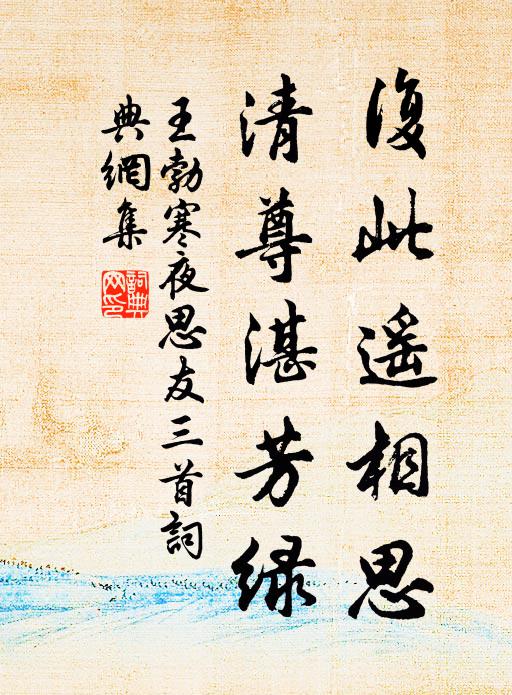 復此遥相思
清尊湛芳緑
王勃寒夜思友三首詞
典網集
詞典
网印